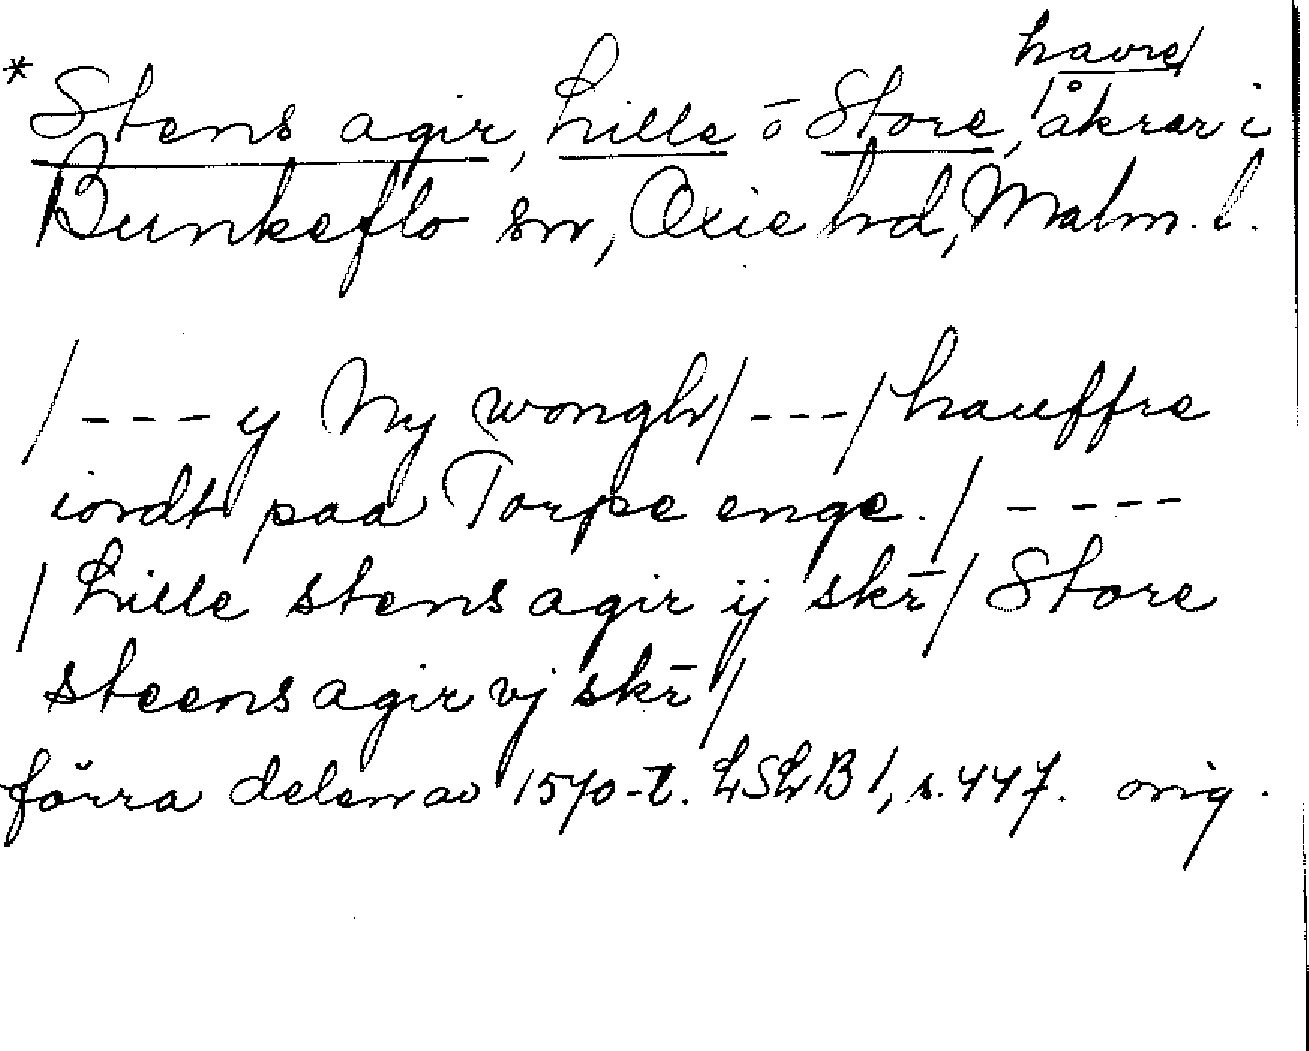 havre/
*Stens agir, Lille o Store, /åkrar i
Bunkeflo sn, Oxie hd, Malm. l.
/---y Ny wongh/---/hauffre
iordt paa Torpe enge./----
/Lille stens agir ij skr̄/Store
steens agir vj skr̄/
förra delen av 1570-t. LSLB 1, s. 447. orig.